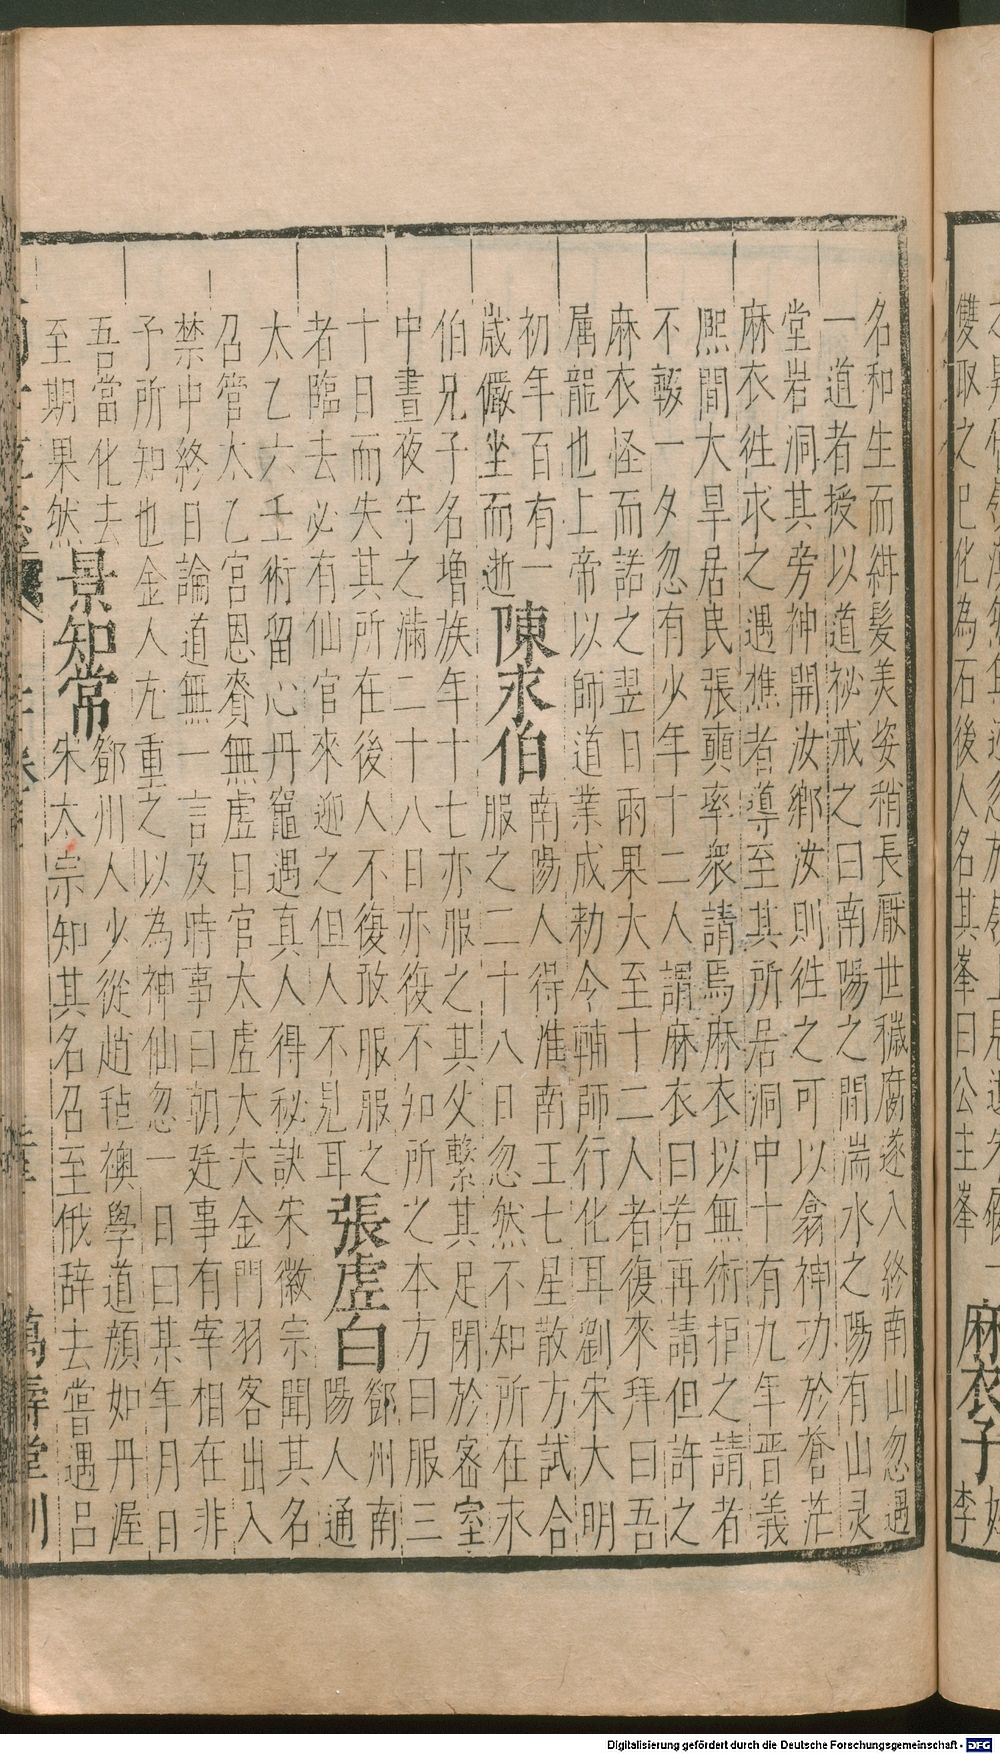 雙取之已化為石後人名其峯曰公主峯 麻衣子 李
名和生而紺髮美姿稍長厭世穢腐遂入終南山忽遇
一道者授以道祕戒之曰南陽之間湍水之陽有山灵
堂岩洞其旁神開汝鄉汝則徃之可以翕神功於蒼茫
麻衣徃求之遇樵者導至其所居洞中十有九年晋義
熙間大旱居民張奭率衆請焉麻衣以無術拒之請者
不輟一夕忽有少年十二人謂麻衣曰若再請但許之
麻衣怪而諾之翌日雨果大至十二人者復來拜曰吾
属龍也上帝以師道業成勅今輔師行化耳劉宋大明
初年百有一
歲儼坐而逝 陳永伯 南陽人得淮南王七星散方試合
服之二十八日忽然不知所在永
伯兄子名增族年十七亦服之其父繫其足閉於密室
中晝夜守之滿二十八日亦復不知所之本方曰服三
十日而失其所在後人不復敢服服之
者臨去必有仙官來迎之但人不見耳 張虛白 鄧州南
陽人通
太乙六壬術留心丹竈遇真人得秘訣宋徽宗聞其名
召管太乙宮恩賚無虛日官太虛大夫金門羽客出入
禁中終日論道無一言及時事曰朝廷事有宰相在非
予所知也金人尤重之以為神仙忽一日曰某年月日
吾當化去
至期果然 景知常 鄧州人少從趙毡襖學道顔如丹渥
宋太宗知其名召至俄辞去嘗遇呂
萬壽堂刊
Digitalisierung gefördert durch die Deutsche Forschungsgemeinschaft - DFG